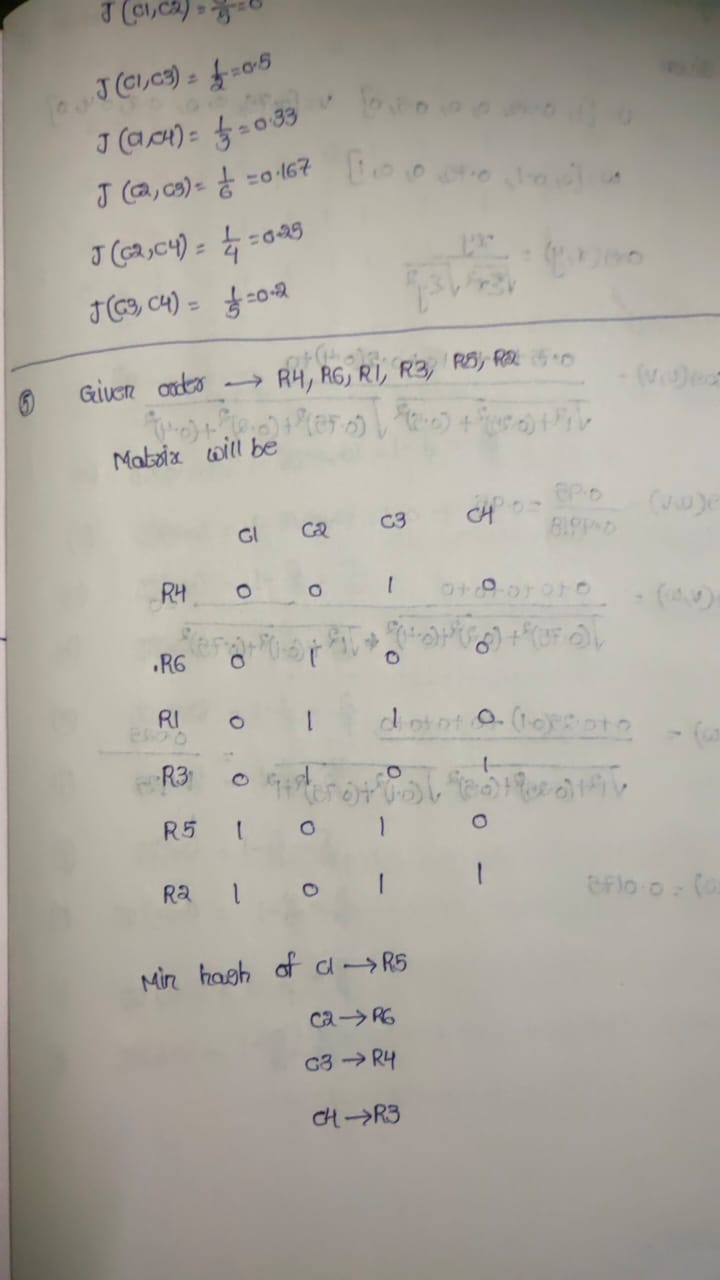 J (C1,C2) = 0/5 = 0
J (C1,C3) = 1/2 = 0.5
J (C1,C4) = 1/3 = 0.33
J (C2,C3) = 1/6 = 0.167
J (C2,C4) = 1/4 = 0.25
J (C3,C4) = 1/5 = 0.2
⑤ Given order → R4, R6, R1, R3, R5, R2
Matrix will be
C1 C2 C3 C4
R4 0 0 1 0
R6 0 1 0 0
R1 0 1 1 0
R3 0 1 0 1
R5 1 0 1 0
R2 1 0 1 1
Min hash of C1 → R5
C2 → R6
C3 → R4
C4 → R3